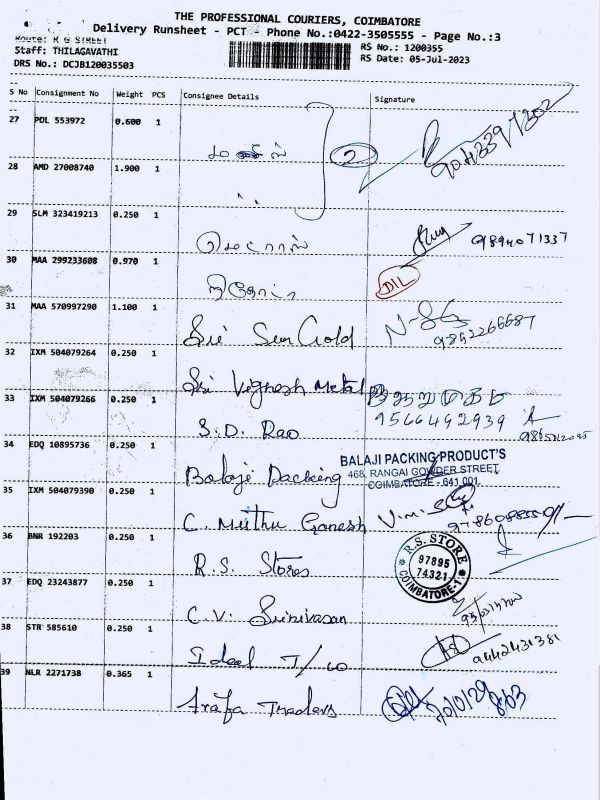 THE PROFESSIONAL COURIERS, COIMBATORE
Delivery Runsheet - PCT - Phone No.:0422-3505555 - Page No.:3
Route: R G STREET
Staff: THILAGAVATHI
DRS No.: DCJB120035503
RS No.: 1200355
RS Date: 05-Jul-2023
S No Consignment No Weight PCS Consignee Details Signature
27 PDL 553972 0.600 1
2
28 AMD 27008740 1.900 1
29 SLM 323419213 0.250 1
9894071337
30 MAA 299233608 0.970 1
DIL
31 MAA 570997290 1.100 1
Sri Sun Gold
9892266687
32 IXM 504079264 0.250 1
Sri Vignesh Metal
33 IXM 504079266 0.250 1
9566492939
S.D. Rao
34 EDQ 10895736 0.250 1
Balaji Packing
BALAJI PACKING PRODUCT'S
468, RANGAI GOWDER STREET,
COIMBATORE - 641 001.
35 IXM 504079390 0.250 1
C. Muthu Ganesh
36 BNR 192203 0.250 1
R.S. Stores
R.S. STORE
97895
74321
COIMBATORE-1
37 EDQ 23243877 0.250 1
C.V. Srinivasan
38 STR 585610 0.250 1
Ideal T/co
9442431381
39 NLR 2271738 0.365 1
Arafa Traders